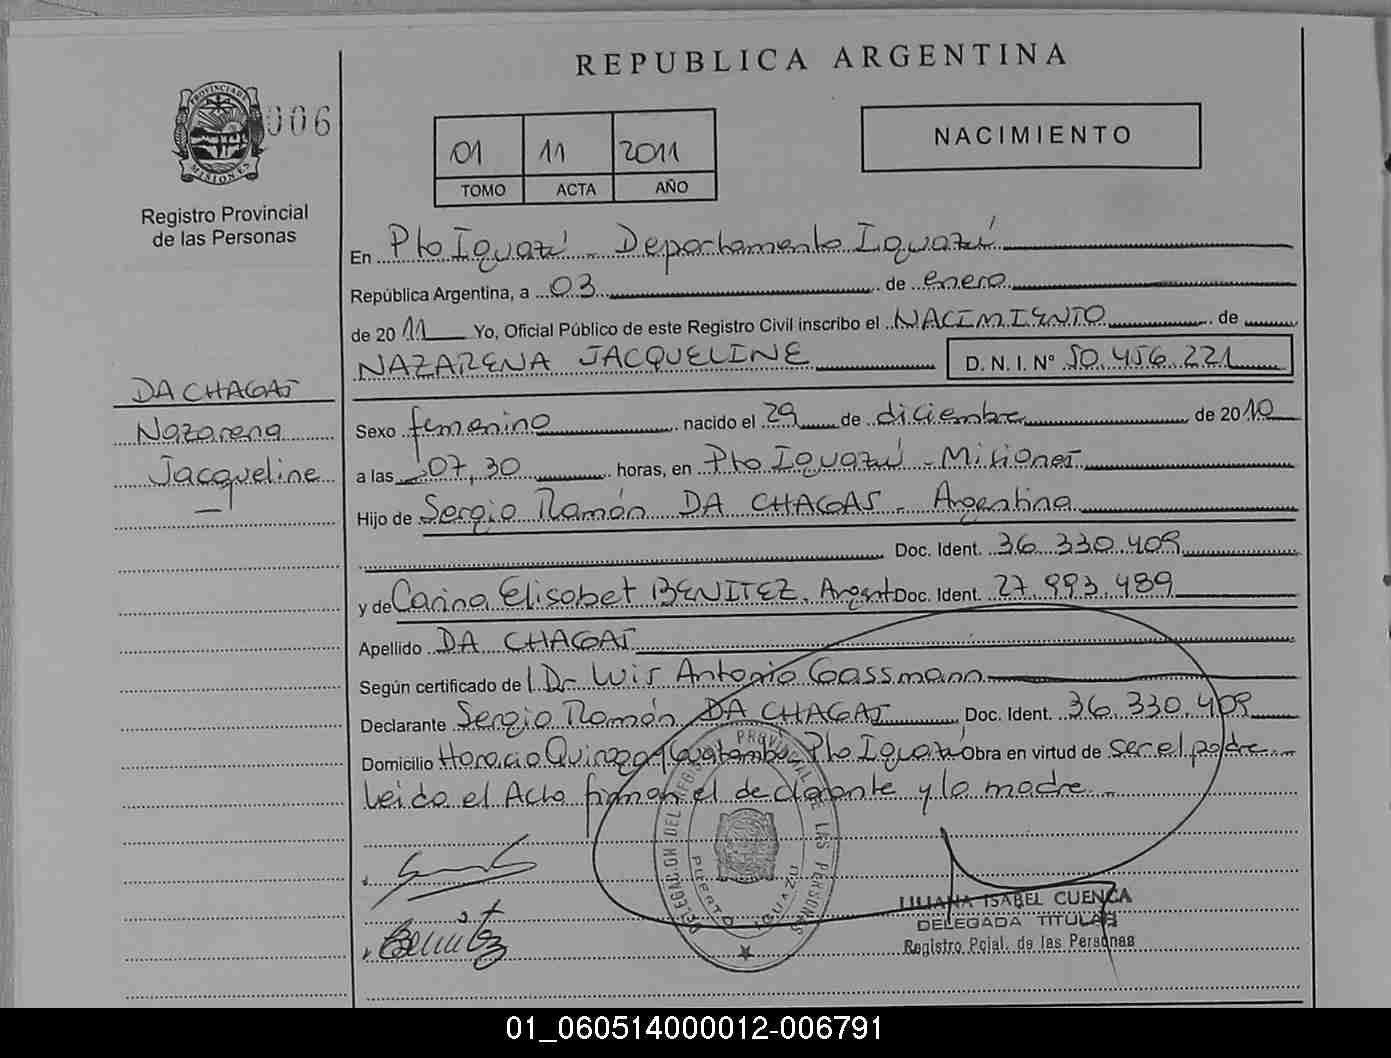 REPUBLICA ARGENTINA
PROVINCIA DE
MISIONES
006
Registro Provincial
de las Personas
01 11 2011
TOMO ACTA AÑO
NACIMIENTO
En Pto Iguazú - Departamento Iguazú
República Argentina, a 03 de enero
de 2011 Yo, Oficial Público de este Registro Civil inscribo el NACIMIENTO de
NAZARENA JACQUELINE D. N. I. Nº 50.456.221
DA CHAGAS
Nazarena
Jacqueline
Sexo femenino nacido el 29 de diciembre de 2010
a las 07,30 horas, en Pto Iguazú - Misiones
Hijo de Sergio Ramón DA CHAGAS - Argentina
Doc. Ident. 36.330.409
y de Carina Elisabet BENITEZ. Argent Doc. Ident. 27.993.489
Apellido DA CHAGAS
Según certificado del Dr Luis Antonio Gassmann
Declarante Sergio Ramón DA CHAGAS Doc. Ident. 36.330.409
Domicilio Horacio Quiroga y Guatambú Pto Iguazú Obra en virtud de ser el padre
Leido el Acta firman el declarante y la madre.-
DELEGACION DEL REGISTRO PROVINCIAL DE LAS PERSONAS
PUERTO IGUAZU
Benitez
LILIANA ISABEL CUENCA
DELEGADA TITULAR
Registro Pcial. de las Personas
01_060514000012-006791